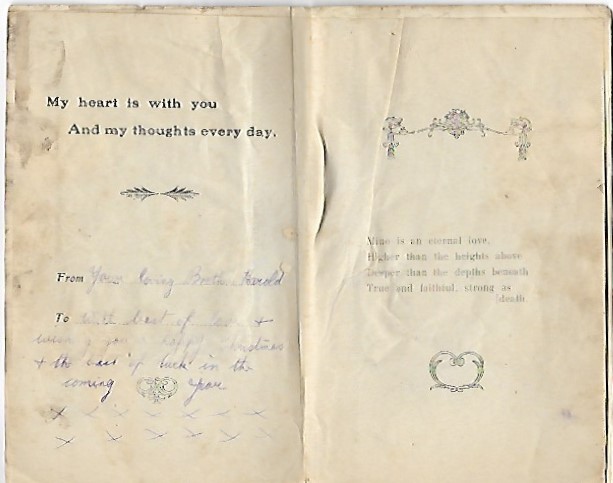 My heart is with you
And my thoughts every day.
From Your loving Brother Harold
To with best of love +
wishing you a happy Christmas
+ the best of luck in the
coming year
x x x x x x
x x x x x x
Mine is an eternal love,
Higher than the heights above
Deeper than the depths beneath
True and faithful, strong as
[death